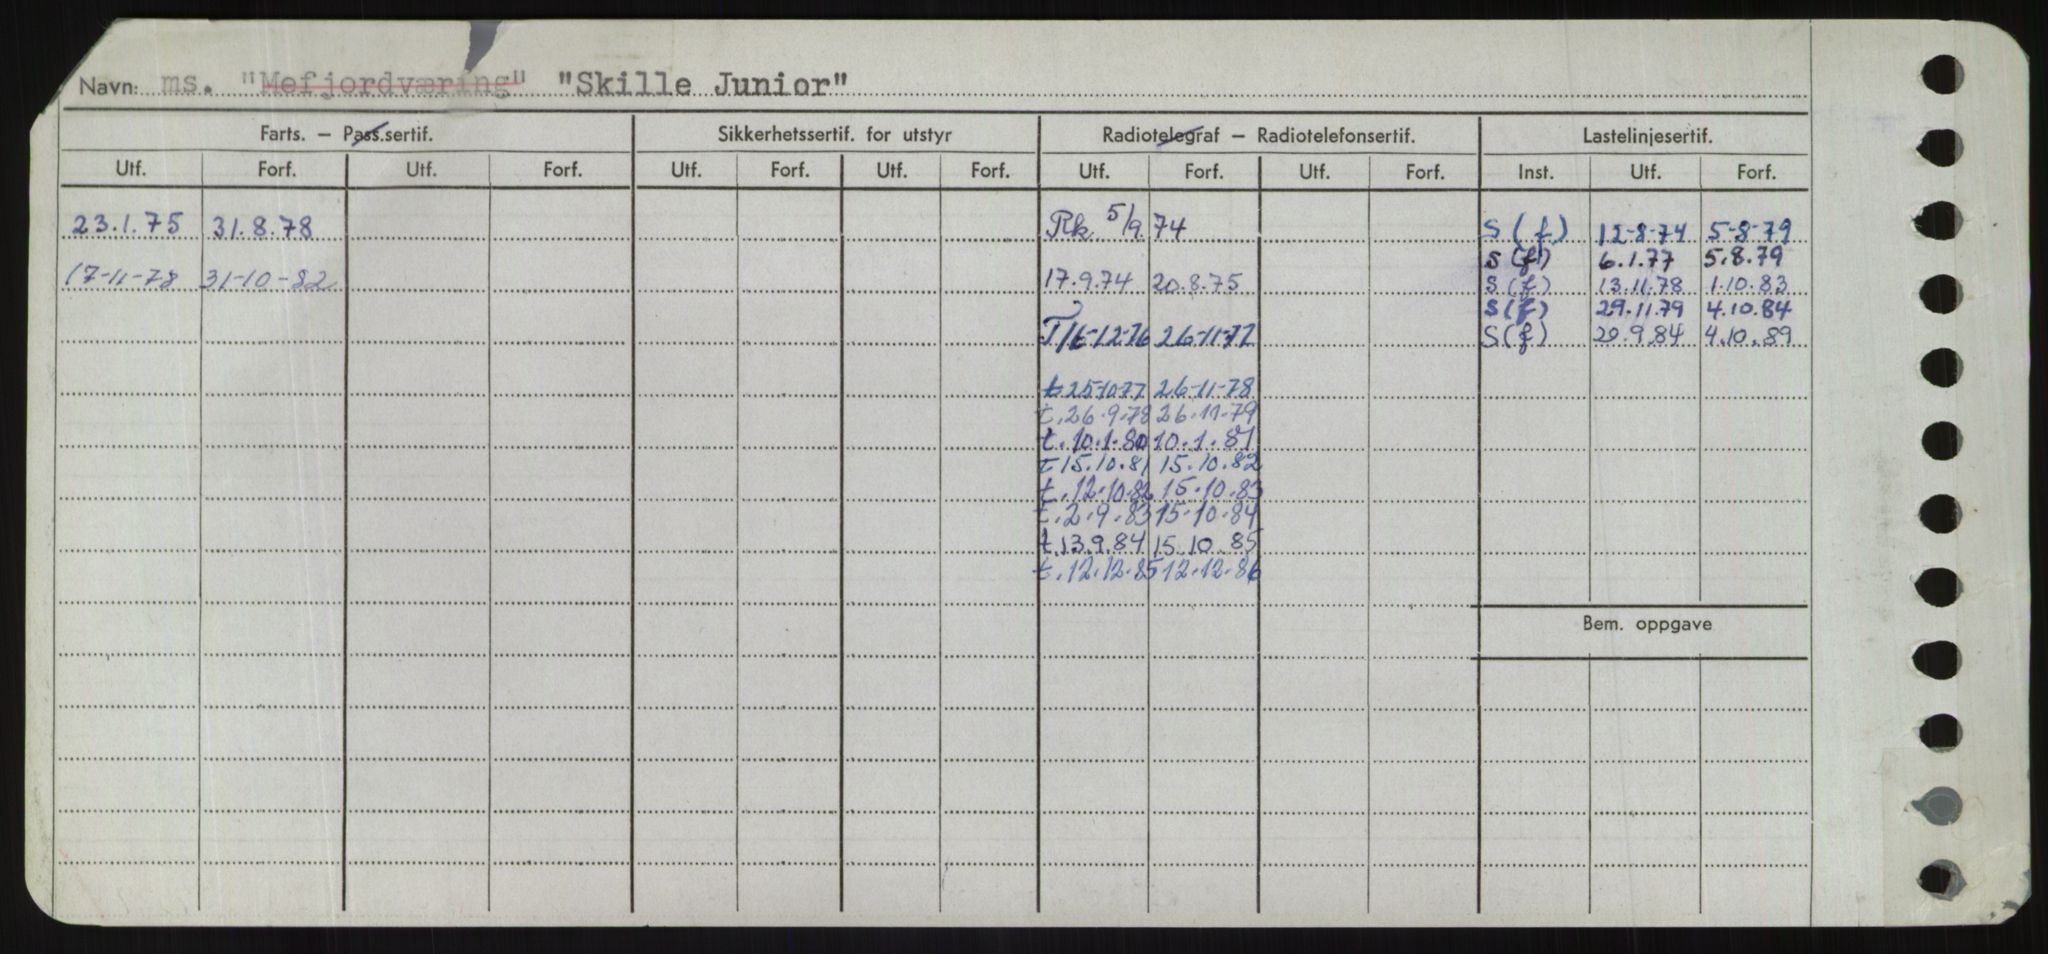 Navn: ms. "Mefjordværing" "Skille Junior"
Farts. – Pass.sertif. Sikkerhetssertif. for utstyr Radiotelegraf – Radiotelefonsertif. Lastelinjesertif.
Utf. Forf. Utf. Forf. Utf. Forf. Utf. Forf. Utf. Forf. Utf. Forf. Inst. Utf. Forf.
23.1.75 31.8.78 Rk. 5/9.74 S(f) 12-8-74 5-8-79
S(f) 6.1.77 5.8.79
17-11-78 31-10-82 17.9.74 20.8.75 S(f) 13.11.78 1.10.83
S(f) 29.11.79 4.10.84
26-11-77 S(f) 20.9.84 4.10.89
t 25-10-77 26-11-78
t.26.9.78 26.11.79
t.10.1.80 10.1.81
t 15.10.81 15.10.82
t.12.10.82 15.10.83
t.2.9.83 15.10.84
t.13.9.84 15.10.85
t.12.12.85 12.12.86
Bem. oppgave